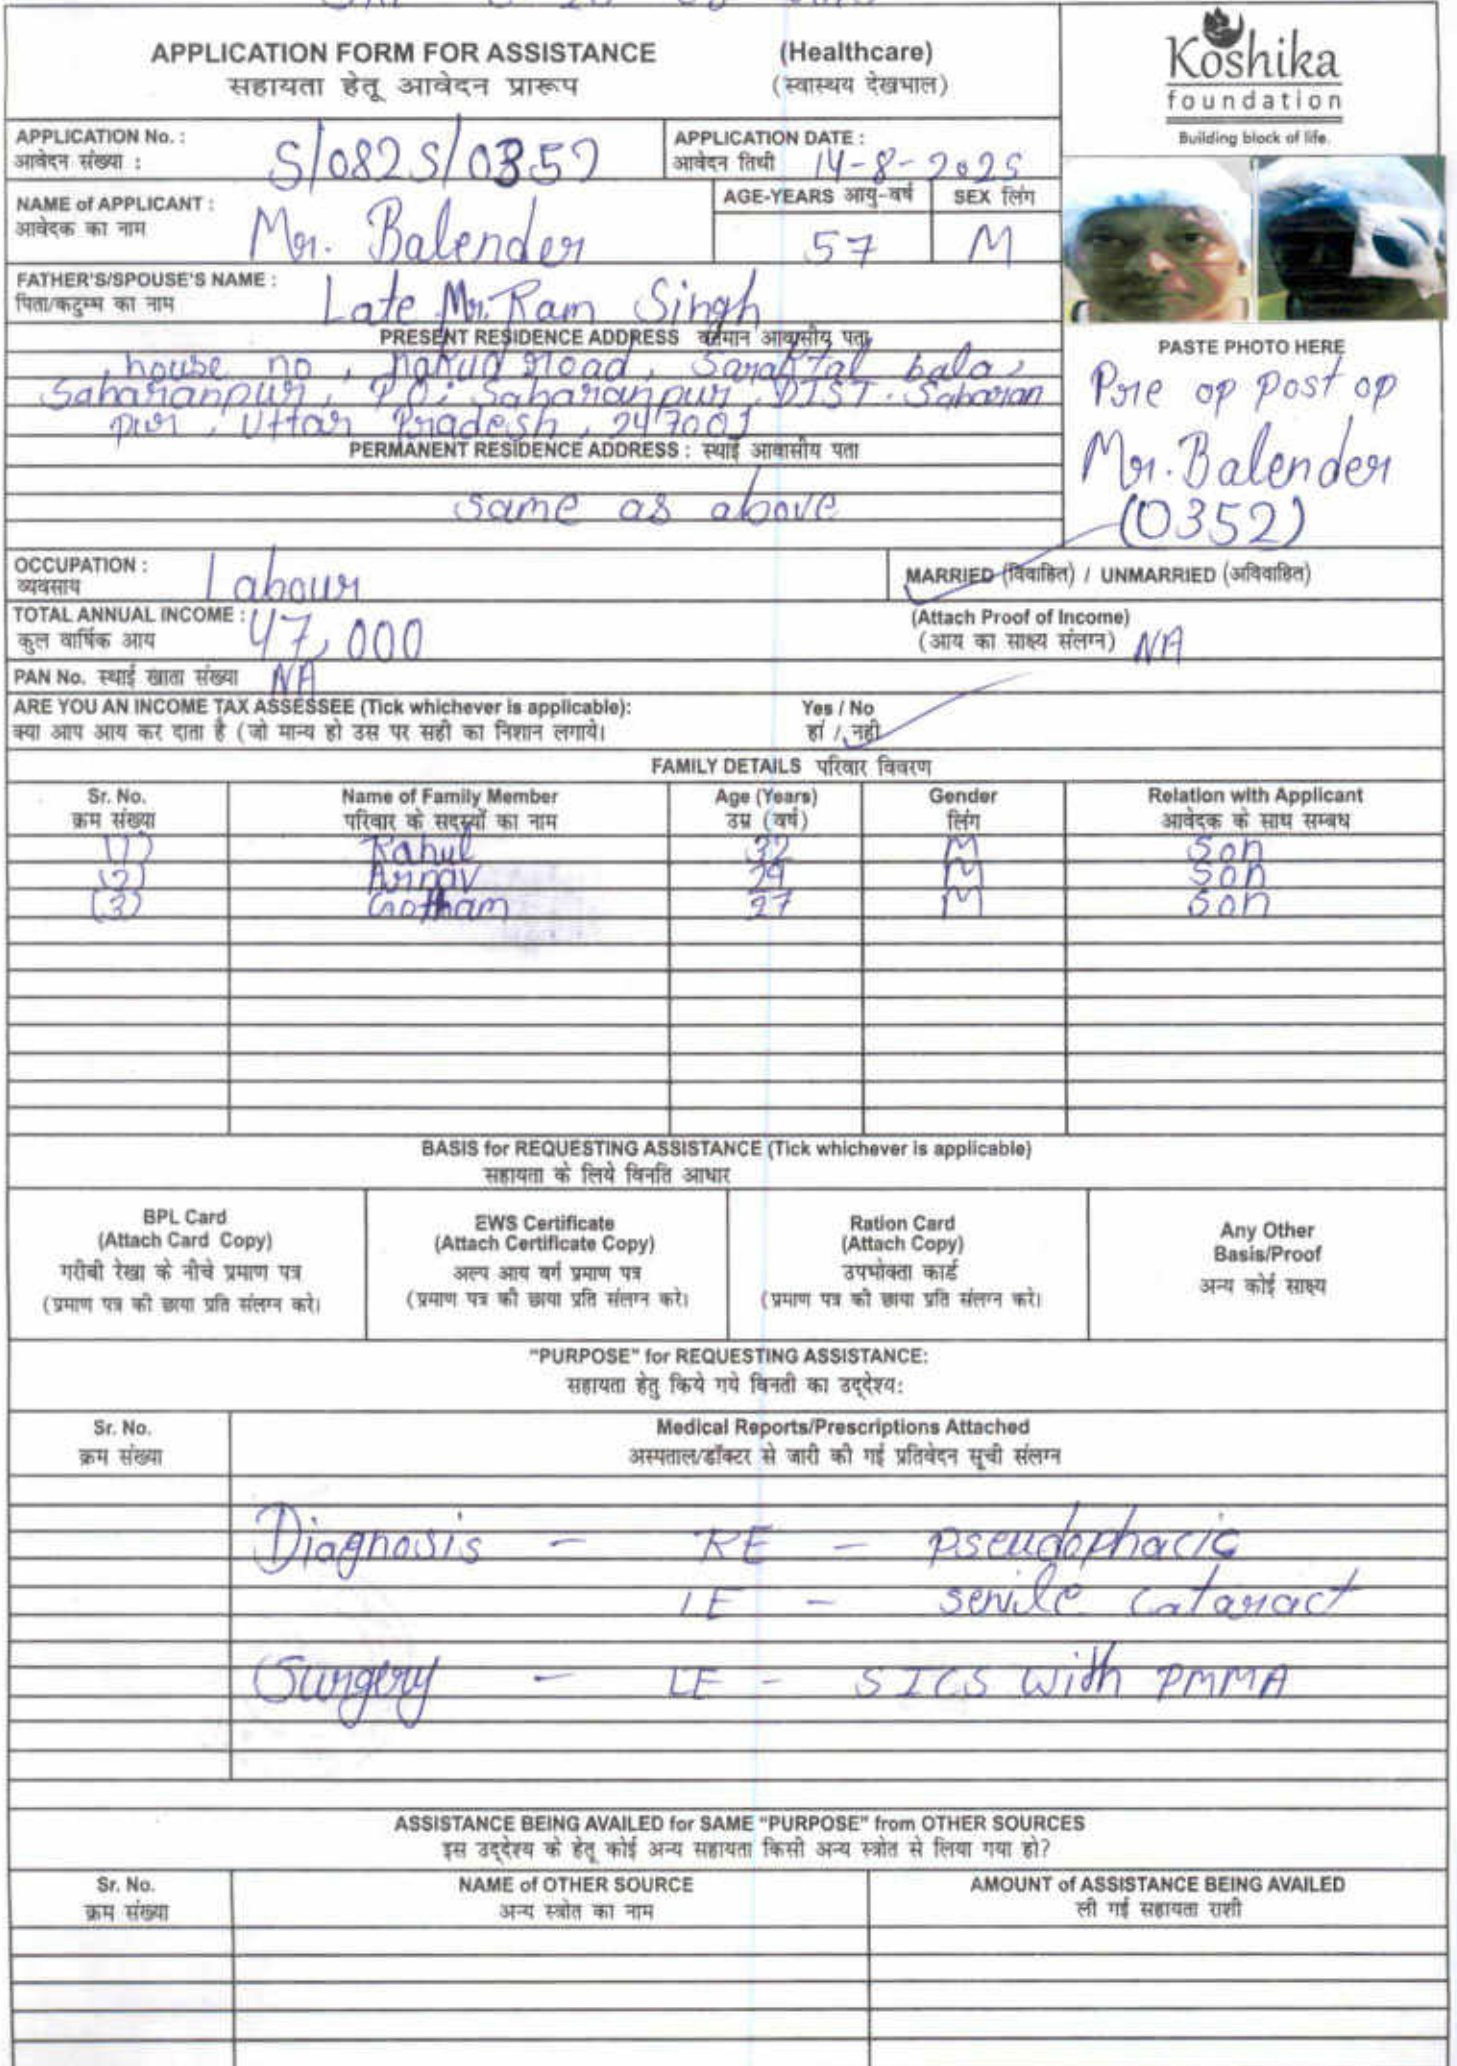 APPLICATION FORM FOR ASSISTANCE (Healthcare)
सहायता हेतू आवेदन प्रारूप (स्वास्थय देखभाल)
Koshika
foundation
Building block of life.
APPLICATION No. : S/0825/0352
आवेदन संख्या :
APPLICATION DATE :
आवेदन तिथी 14-8-2025
NAME of APPLICANT :
आवेदक का नाम Mr. Balender
AGE-YEARS आयु-वर्ष 57
SEX लिंग M
FATHER'S/SPOUSE'S NAME :
पिता/कटुम्ब का नाम Late Mr. Ram Singh
PRESENT RESIDENCE ADDRESS वर्तमान आवासीय पता
house no, nakud road, Saraktal bala,
Saharanpur, P.O: Saharanpur, DIST. Saharan
pur, Uttar Pradesh, 247001
PERMANENT RESIDENCE ADDRESS : स्थाई आवासीय पता
same as above
PASTE PHOTO HERE
Pre op post op
Mr. Balender
(0352)
OCCUPATION :
व्यवसाय Labour
MARRIED (विवाहित) / UNMARRIED (अविवाहित)
TOTAL ANNUAL INCOME : 47,000
कुल वार्षिक आय
(Attach Proof of Income)
(आय का साक्ष्य संलग्न) NA
PAN No. स्थाई खाता संख्या NA
ARE YOU AN INCOME TAX ASSESSEE (Tick whichever is applicable): Yes / No
क्या आप आय कर दाता है (जो मान्य हो उस पर सही का निशान लगाये। हां / नही
FAMILY DETAILS परिवार विवरण
Sr. No. Name of Family Member Age (Years) Gender Relation with Applicant
क्रम संख्या परिवार के सदस्यों का नाम उम्र (वर्ष) लिंग आवेदक के साथ सम्बध
(1) Rahul 32 M Son
(2) Arnav 29 M Son
(3) Gotham 27 M Son
BASIS for REQUESTING ASSISTANCE (Tick whichever is applicable)
सहायता के लिये विनति आधार
BPL Card
(Attach Card Copy)
गरीबी रेखा के नीचे प्रमाण पत्र
(प्रमाण पत्र की छाया प्रति संलग्न करे।
EWS Certificate
(Attach Certificate Copy)
अल्प आय वर्ग प्रमाण पत्र
(प्रमाण पत्र की छाया प्रति संलग्न करे।
Ration Card
(Attach Copy)
उपभोक्ता कार्ड
(प्रमाण पत्र की छाया प्रति संलग्न करे।
Any Other
Basis/Proof
अन्य कोई साक्ष्य
"PURPOSE" for REQUESTING ASSISTANCE:
सहायता हेतु किये गये विनती का उद्देश्य:
Sr. No. Medical Reports/Prescriptions Attached
क्रम संख्या अस्पताल/डॉक्टर से जारी की गई प्रतिवेदन सूची संलग्न
Diagnosis - RE - pseudophacic
LE - senile cataract
Surgery - LE - SICS with PMMA
ASSISTANCE BEING AVAILED for SAME "PURPOSE" from OTHER SOURCES
इस उद्देश्य के हेतू कोई अन्य सहायता किसी अन्य स्त्रोत से लिया गया हो?
Sr. No. NAME of OTHER SOURCE AMOUNT of ASSISTANCE BEING AVAILED
क्रम संख्या अन्य स्त्रोत का नाम ली गई सहायता राशी